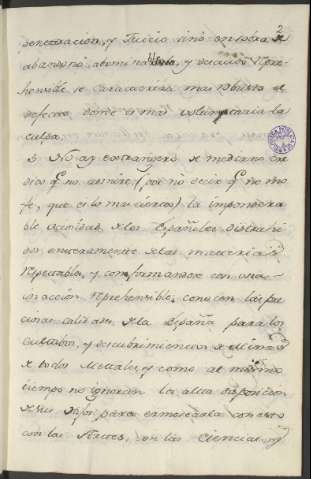 2
penetracion, y Juicio sinó en obra de
abandono abominable, y descuido repre-
hensible se caracteriza mas robusto el
defecto, donde es mas voluntaria la
culpa.
No ay extrangero de mediano en
dios q. no admire (por no decir q. no mo
fe, que es lo mas cierto) la impondera
ble ociosidad de los Españoles distrahi
dos enteramente de las materias
respetables, y conformandose con una
inaccion reprehensible, conocen las pre
ciosas calidades de la España para los
Cultivos, y descubrimientos de Minas
de todos Metales, y como al mismo
tiempo no ignoran la alta disposicion
de sus hijos para esmerarse con esto
con las Artes, en las Ciencias, y